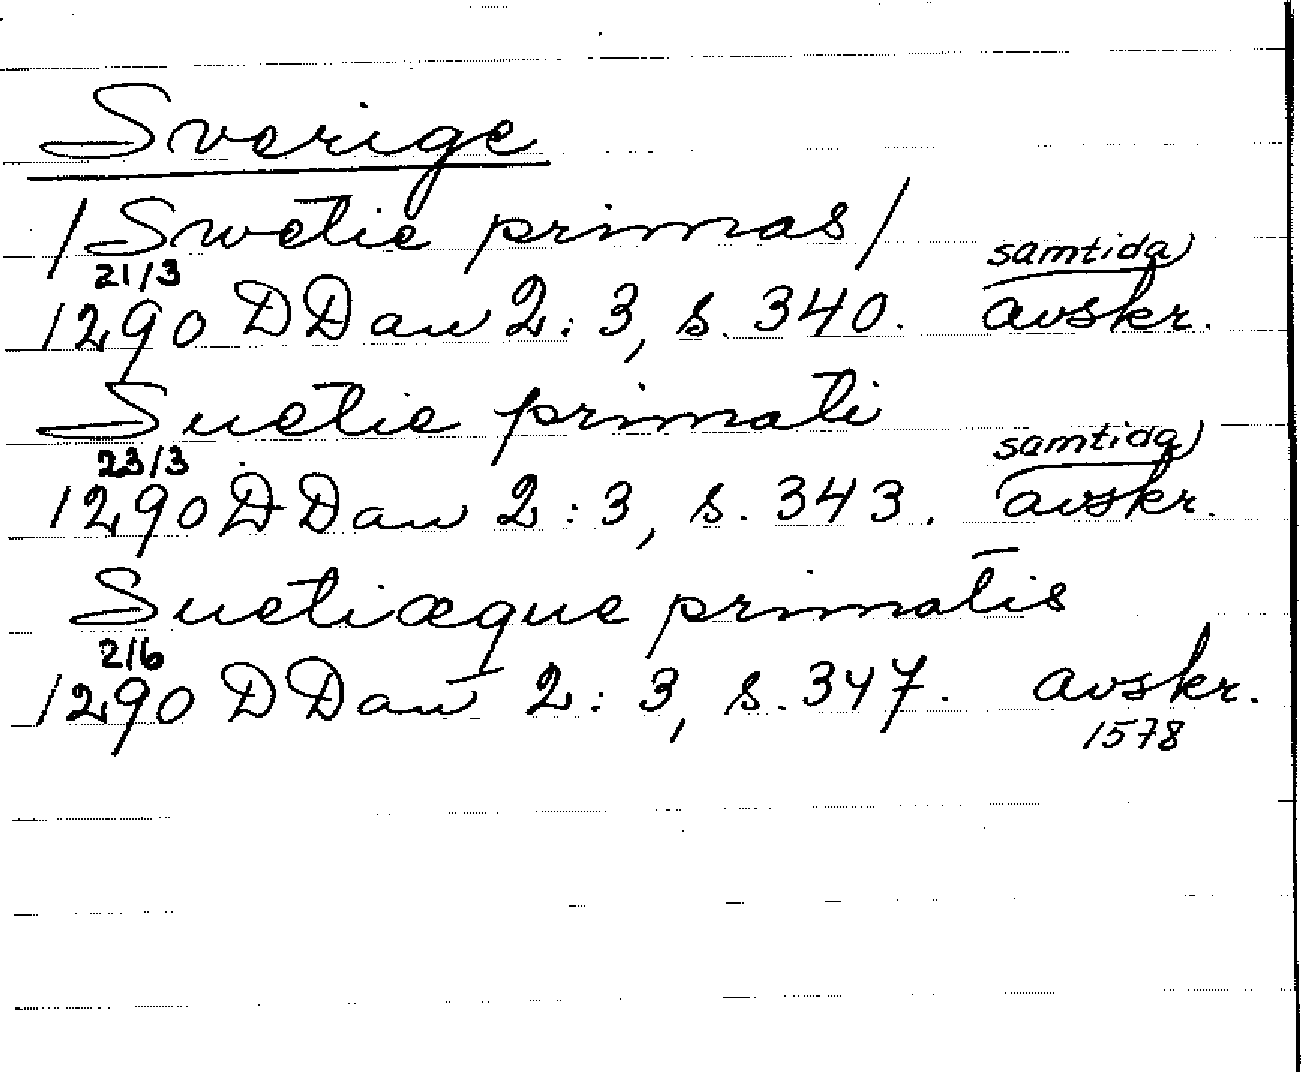 Sverige
/Swetie primas/
21/3 samtida
1290 DDan 2:3, s. 340. avskr.
Suetie primati
23/3 samtida
1290 DDan 2:3, s. 343. avskr.
Suetiæque primatis
2/6
1290 DDan 2:3, s. 347. avskr.
1578